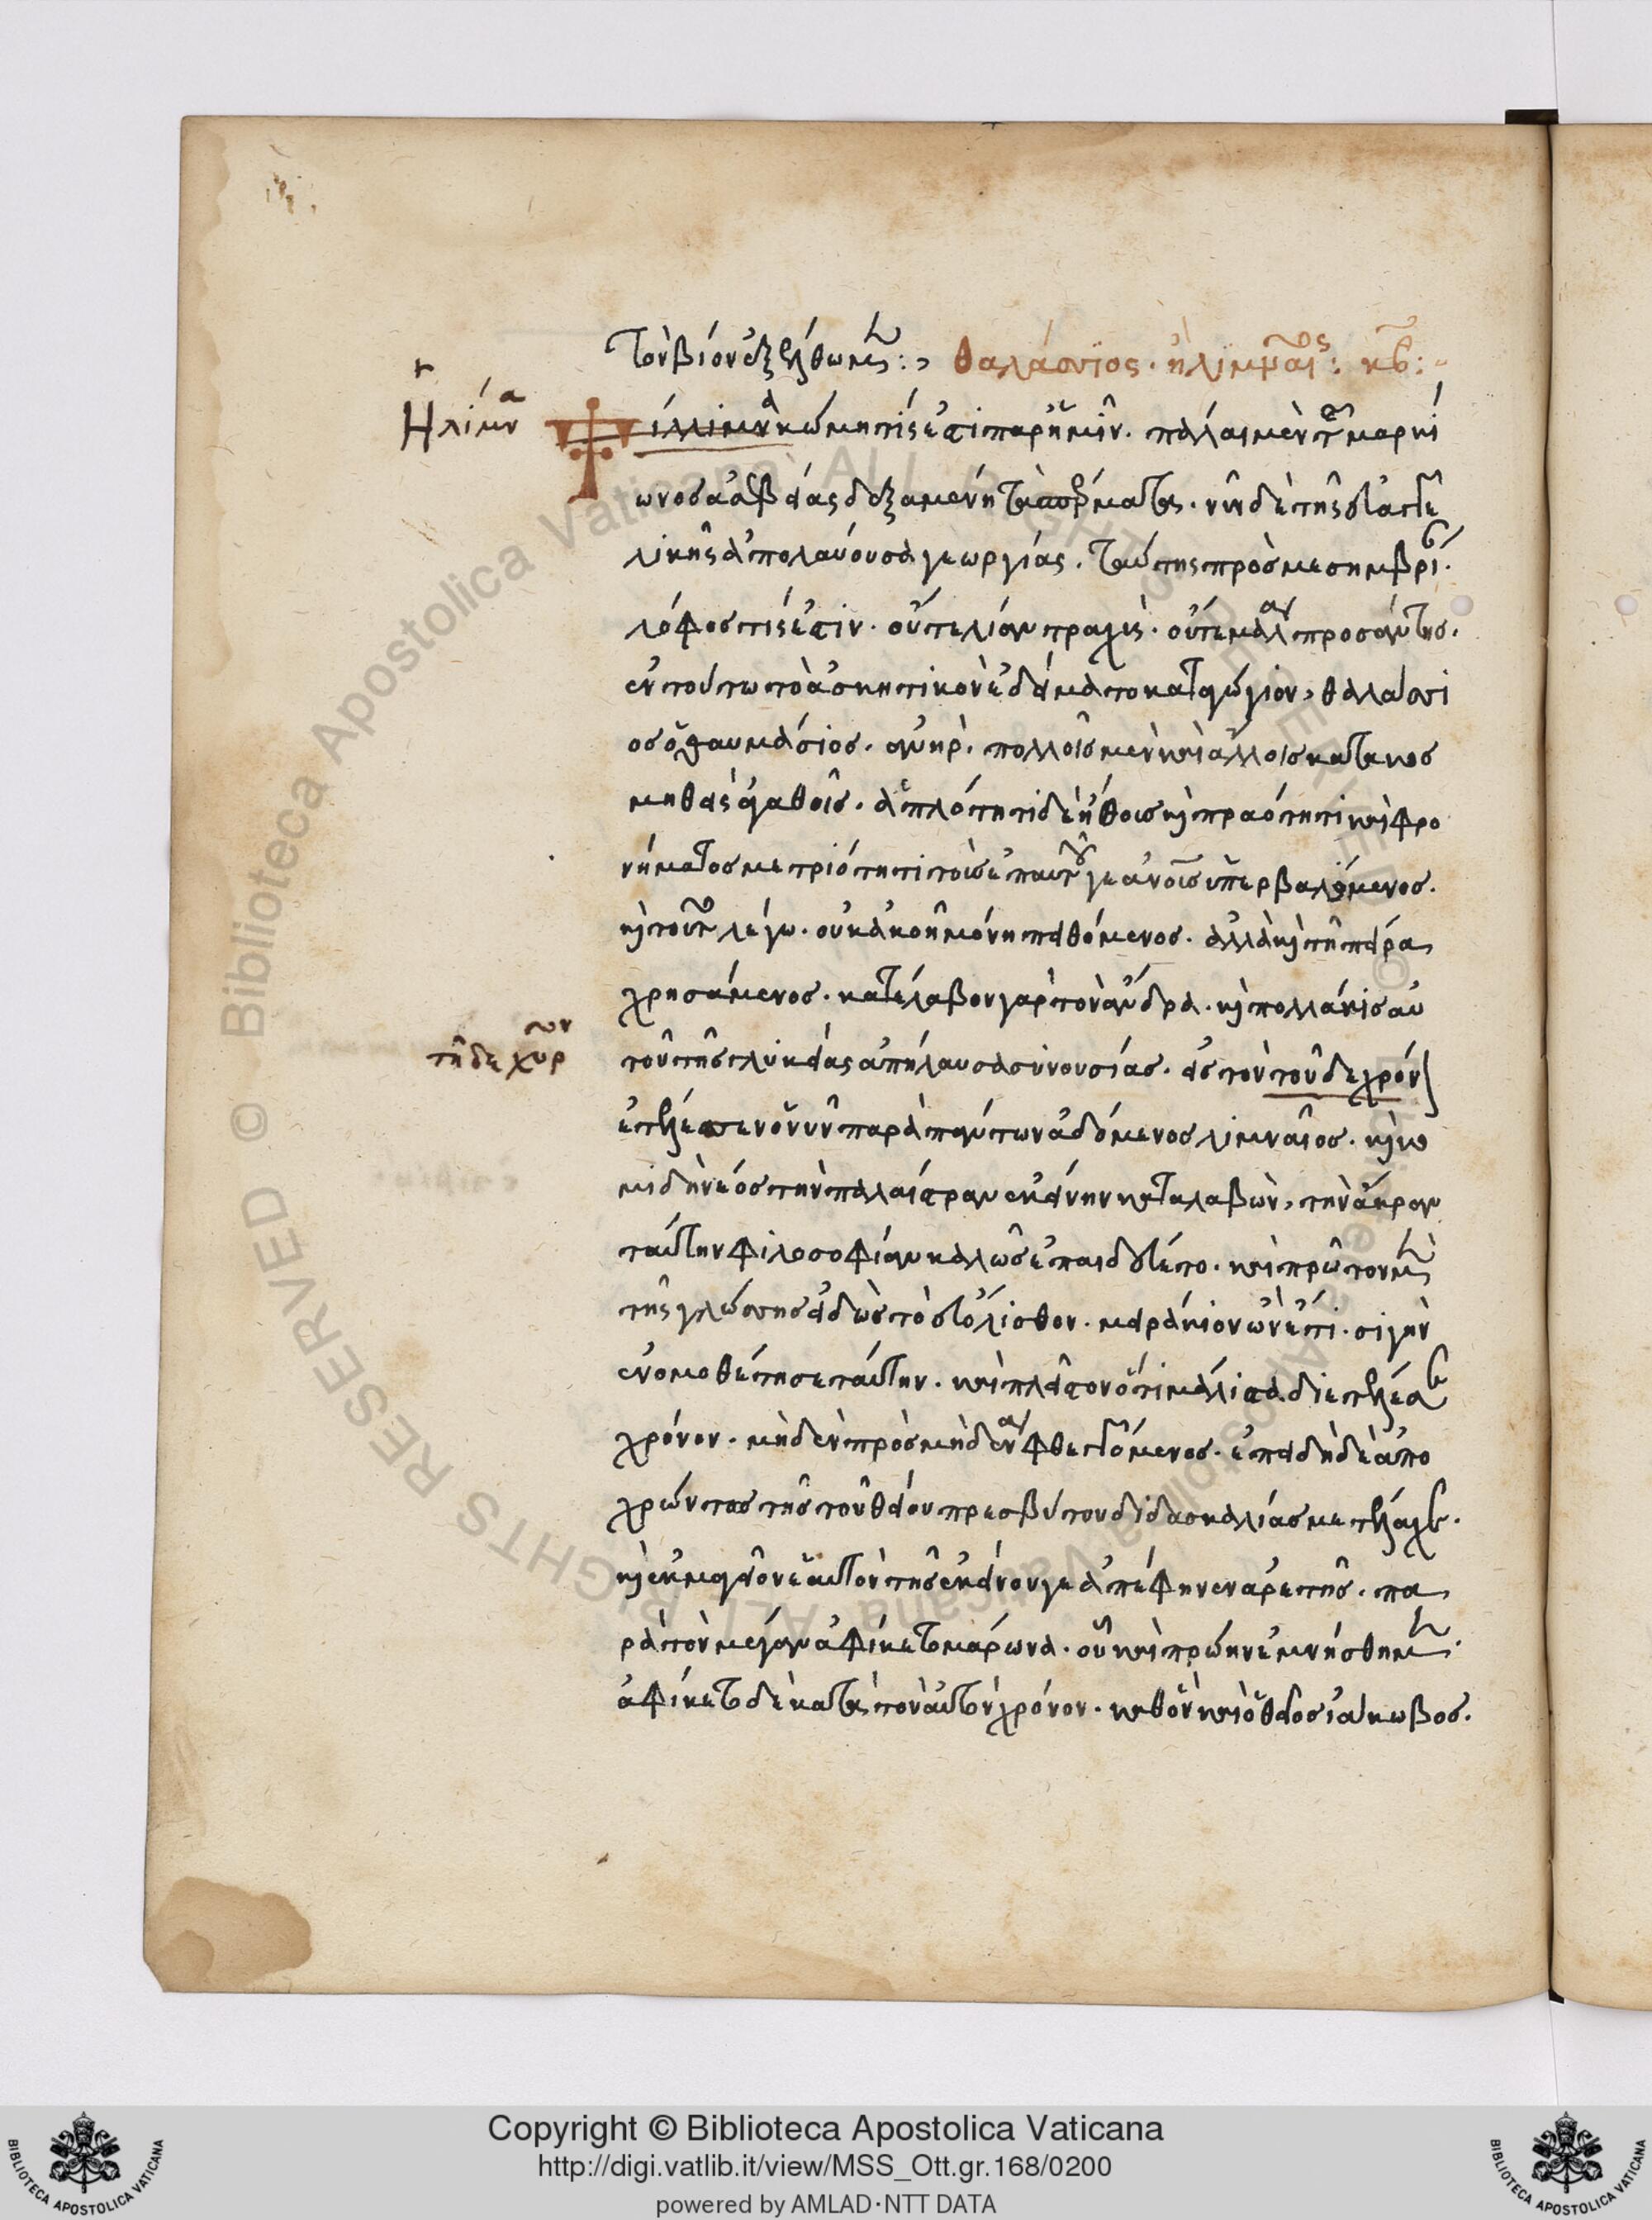 τὸν βίον ἐξέλθωμεν :, θαλάσσιος· ἢ λιμναῖος : κβ :~
Η λίμνα
Τίλλιμα κώμη τίς ἐστι παρ' ἡμῖν. πάλαι μὲν τῆς μαρκί
ωνος ἀσεβείας δεξαμένη τὰ σπέρματα. νῦν δὲ τῆς εὐαγγε
λικῆς ἀπολαύουσα γεωργίας. ταύτης πρὸς μεσημβρίαν.
λόφος τίς ἐστιν. οὔτε λίαν τραχὺς. οὔτε μάλα προσάντης.
ἐν τούτω τὸ ἀσκητικὸν ἐδείματο καταγώγιον, θαλάσσι
ος ὁ θαυμάσιος. ἀνὴρ. πολλοῖς μὲν καὶ ἄλλοις κατακοσ
μηθεὶς ἀγαθοῖς. ἁπλότητι δὲ ἤθους καὶ πραότητι καὶ φρο
νήματος μετριότητι τοὺς ἐπ' αὐτοῦ γε ἀνους ὑπερβαλόμενος.
καὶ τοῦτο λέγω. οὐκ ἀκοῆ μόνη πειθόμενος. ἀλλὰ καὶ τῆ πείρα
χρησάμενος. κατέλαβον γὰρ τὸν ἄνδρα. καὶ πολλάκις αὐ
τοῦ τῆς γλυκείας ἀπήλαυσα συνουσίας. εἰς τὸν τοῦδε χρόν
τῆδε χορ ον
ἐτέλεσεν ὁ νῦν παρὰ πάντων ἀδόμενος λιμναῖος. καὶ κο
μιδῆ νέος τὴν παλαίστραν ἐκείνην καταλαβὼν, τὴν ἄκραν
ταύτην φιλοσοφίαν καλῶς ἐπαιδεύετο. καὶ πρῶτον μὲν
τῆς γλώττης εἰδὼς τὸ εὐόλισθον. μειράκιον ὢν ἔτι. σιγὴν
ἐνομοθέτησε ταύτην. καὶ πλεῖστον ὅτι μάλιστα διετέλεσε
χρόνον. μηδὲν πρὸς μηδένα φθεγγόμενος. ἐπειδὴ δὲ ἀπο
χρώντος τῆς τοῦ θείου πρεσβύτου διδασκαλίας μετέλαχε.
καὶ ἐκμαγεῖον ἑαυτὸν τῆς ἐκείνου γε ἀπέφηνεν ἀρετῆς. πα
ρὰ τὸν μέγαν ἀφίκετο μάρωνα. οὗ καὶ πρώην ἐμνήσθημεν.
ἀφίκετο δὲ κατὰ τὸν αὐτὸν χρόνον. καθ' ὃν καὶ ὁ θεῖος ἰάκωβος.
Copyright © Biblioteca Apostolica Vaticana
http://digi.vatlib.it/view/MSS_Ott.gr.168/0200
powered by AMLAD·NTT DATA
BIBLIOTECA APOSTOLICA VATICANA
BIBLIOTECA APOSTOLICA VATICANA